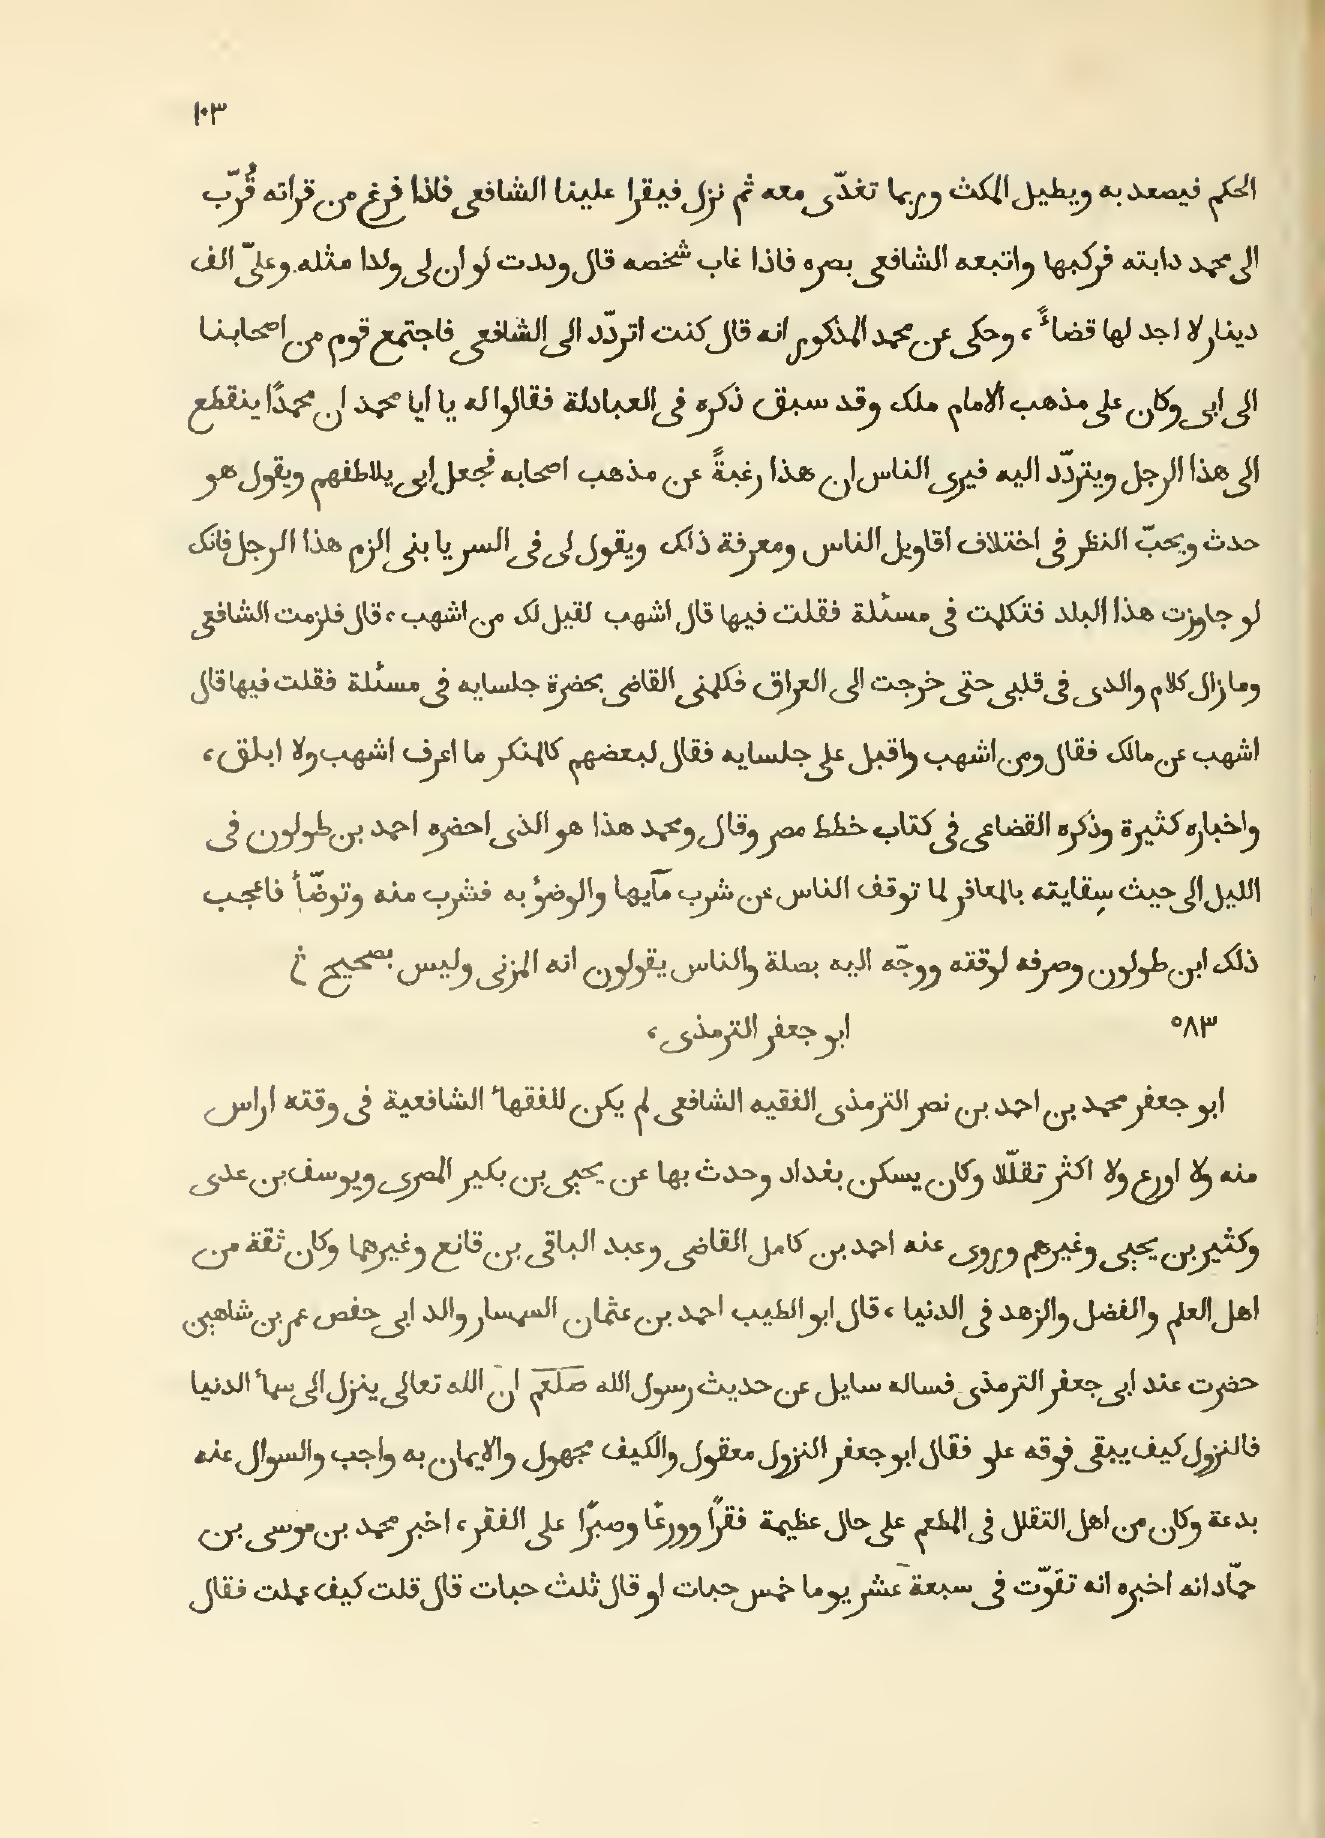 ١٠٣
الحكم فيصعد به ويطيل المكث وربما تغدّى معه ثم نزل فيقرا علينا الشافعى فاذا فرغ من قراته قُرّب
الى محمد دابته فركبها واتبعه الشافعى بصره فاذا غاب شخصه قال وددت لو ان لى ولدا مثله وعلىّ الف
دينار لا اجد لها قضاءً ، وحكى عن محمد المذكور انه قال كنت اتردّد الى الشافعى فاجتمع قوم من اصحابنا
الى ابى وكان على مذهب الامام ملك وقد سبق ذكره فى العبادلة فقالوا له يا ابا محمد ان محمدًا ينقطع
الى هذا الرجل ويتردّد اليه فيرى الناس ان هذا رغبةً عن مذهب اصحابه فجعل ابى يلاطفهم ويقول هو
حدث ويحبّ النظر فى اختلاف اقاويل الناس ومعرفة ذلك ويقول لى فى السر يا بنى الزم هذا الرجل فانك
لو جاوزت هذا البلد فتكلمت فى مسئلة فقلت فيها قال اشهب لقيل لك من اشهب ، قال فلزمت الشافعى
وما زال كلام والدى فى قلبى حتى خرجت الى العراق فكلمنى القاضى بحضرة جلسايه فى مسئلة فقلت فيها قال
اشهب عن مالك فقال ومن اشهب واقبل على جلسايه فقال لبعضهم كالمنكر ما اعرف اشهب ولا ابلق ،
واخباره كثيرة وذكره القضاعى فى كتاب خطط مصر وقال ومحمد هذا هو الذى احضره احمد بن طولون فى
الليل الى حيث سِقايته بالمعافر لما توقف الناس عن شرب مآيها والوضؤ به فشرب منه وتوضّأ فاعجب
ذلك ابن طولون وصرفه لوقته ووجّه اليه بصلة والناس يقولون انه المزنى وليس بصحيح ݣ
٥٨٣ ابو جعفر الترمذى ،
ابو جعفر محمد بن احمد بن نصر الترمذى الفقيه الشافعى لم يكن للفقهاء الشافعية فى وقته اراس
منه ولا اورع ولا اكثر تقلّلا وكان يسكن بغداد وحدث بها عن يحيى بن بكير المصرى ويوسف بن عدى
وكثير بن يحيى وغيرهم وروى عنه احمد بن كامل القاضى وعبد الباقى بن قانع وغيرهما وكان ثقة من
اهل العلم والفضل والزهد فى الدنيا ، قال ابو الطيب احمد بن عثمان السمسار والد ابى حفص عمر بن شاهين
حضرت عند ابى جعفر الترمذى فساله سايل عن حديث رسول الله صلعم ان الله تعالى ينزل الى سماء الدنيا
فالنزول كيف يبقى فوقه علو فقال ابو جعفر النزول معقول والكيف مجهول والايمان به واجب والسوال عنه
بدعة وكان من اهل التقلل فى المطعم على حال عظيمة فقرًا وورعًا وصبرًا على الفقر ، اخبر محمد بن موسى بن
حمّاد انه اخبره انه تقوّت فى سبعة عشر يوما خمس حبات او قال ثلث حبات قال قلت كيف عملت فقال